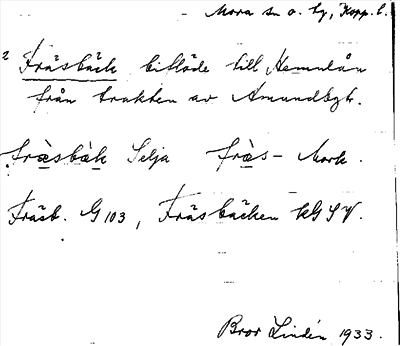 Mora sn o. tg, Kopp. l.
2 Fräsbäck biflöde till Hemulån
från trakten av Amundsgb.
fräsbäk Selja fräs- Mork.
Fräsb. G 103, Fräsbäcken kG S V.
Bror Lindén 1933.